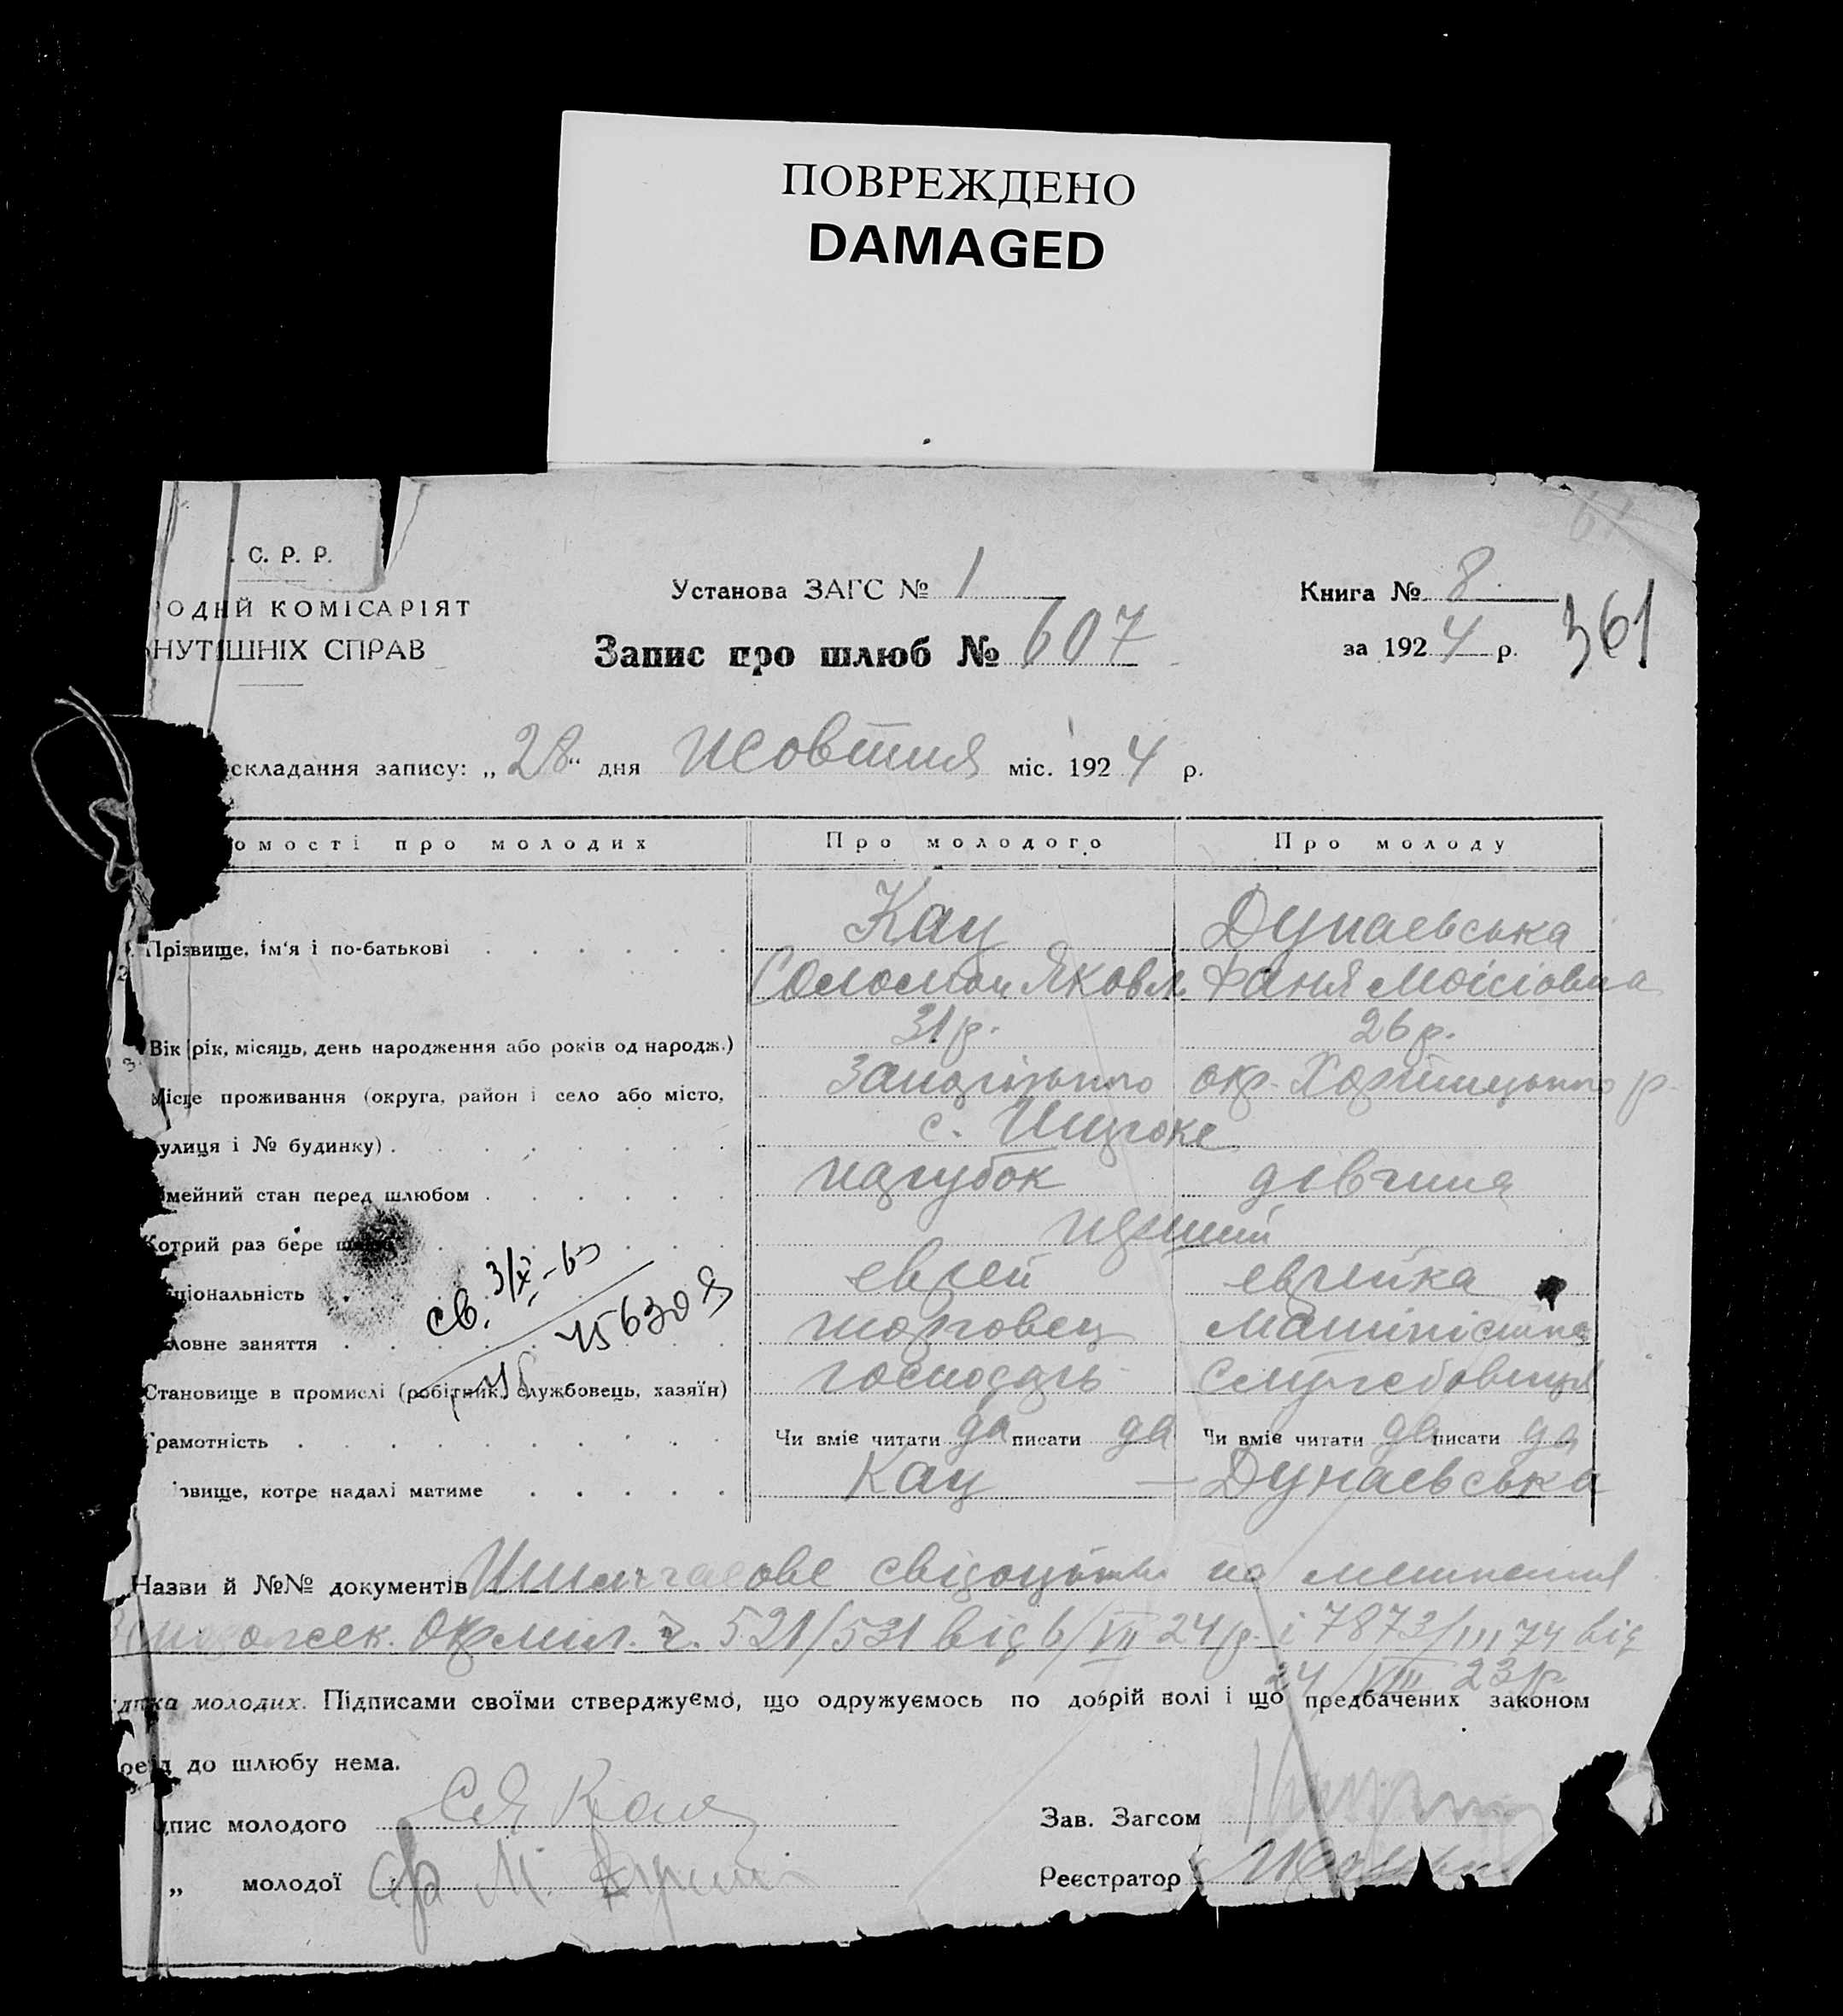 ПОВРЕЖДЕНО
DAMAGED
. С. Р. Р.
ОДНІЙ КОМІСАРІЯТ
НУТІШНІХ СПРАВ
Установа ЗАГС № 1
Запис про шлюб № 607
Книга № 8
за 1924 р.
361
складання запису: „28“ дня Жовтня міс. 1924 р.
омості про молодих
Про молодого
Про молоду
Прізвище, ім'я і по-батькові
Кац
Дунаевська
Соломон Яковл.
Фаня Моісіовна
Вік (рік, місяць, день народження або років од народж.)
31 р.
26 р.
Місце проживання (округа, район і село або місто,
Запорізького окр. Хортицького р.
улиця і № будинку)
с.
мейний стан перед шлюбом
парубок
дівчина
Котрий раз бере
перший
ціональність
еврей
еврейка
ловне заняття
торговец
машиністка
Становище в промислі (робітник, службовець, хазяїн)
господарь
Служебовиця
Грамотність
Чи вміє читати да писати да
Чи вміє читати да писати да
звище, котре надалі матиме
Кац — Дунаевська
св. 3/X-
Назви й №№ документів свідоцтва на мешкання
Окрміл. ч. 521/531 від 6/VII 24 р. і 7873/ 74 від
24/VIII 23 р.
молодих. Підписами своїми стверджуємо, що одружуємось по добрій волі і що предбачених законом
до шлюбу нема.
пис молодого СЯ Кац
Зав. Загсом
„ молодої Ф М.
Реєстратор